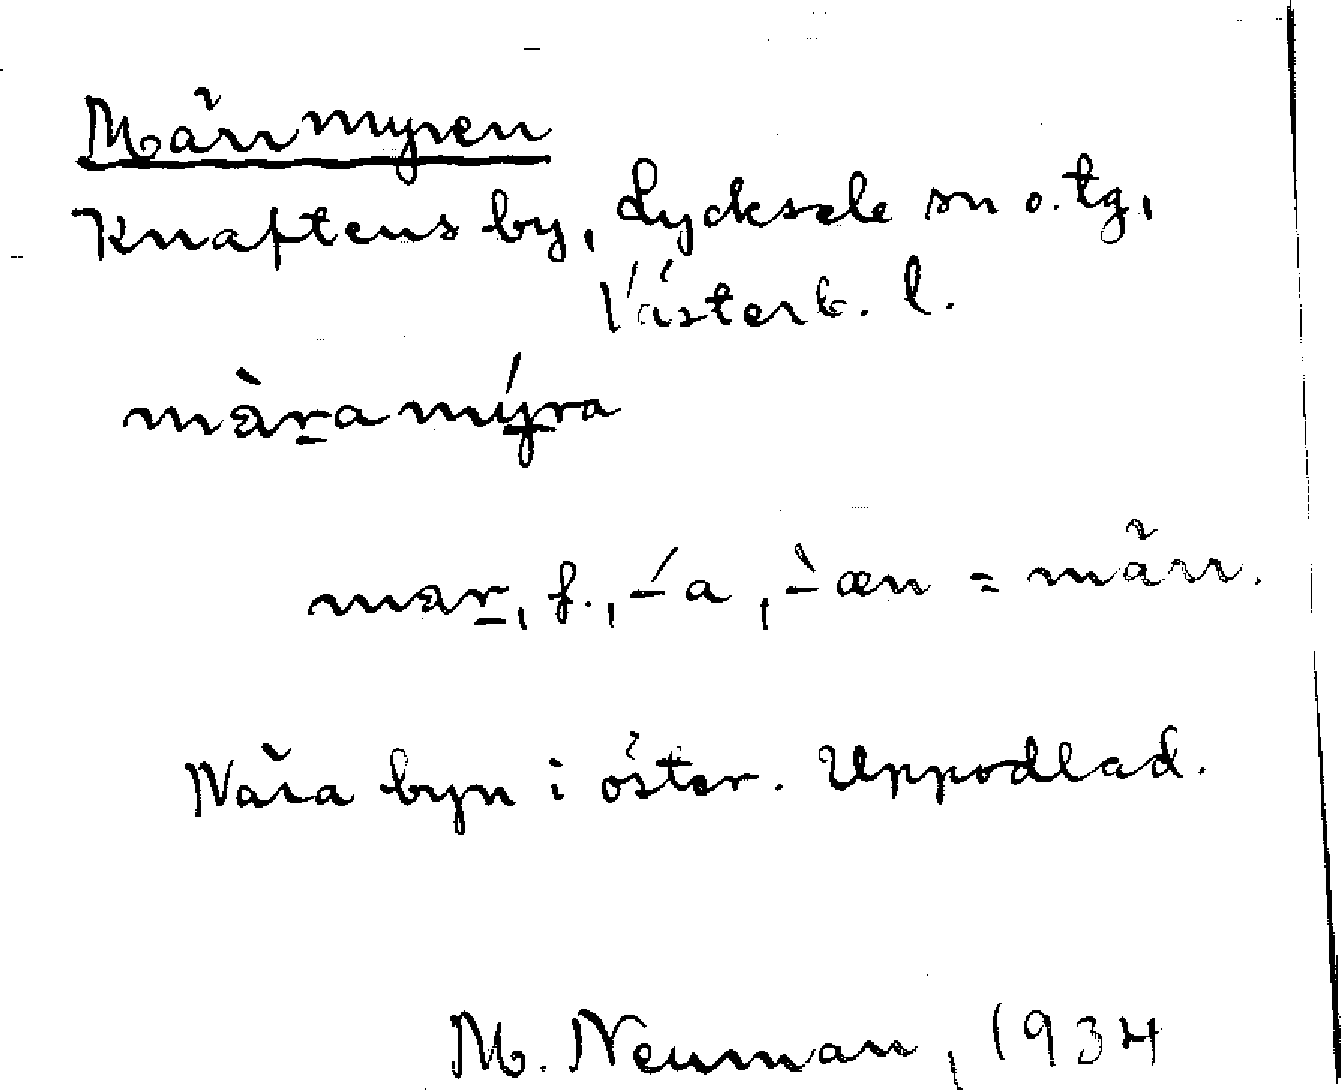 Märrmyren
Knaftens by, Lycksele sn o. tg,
Västerb. l.
mæ̀r̠amý̠ra
mær̠, f., -́a, -̀æn = märr.
Nära byn i öster. Uppodlad.
M. Neuman, 1934